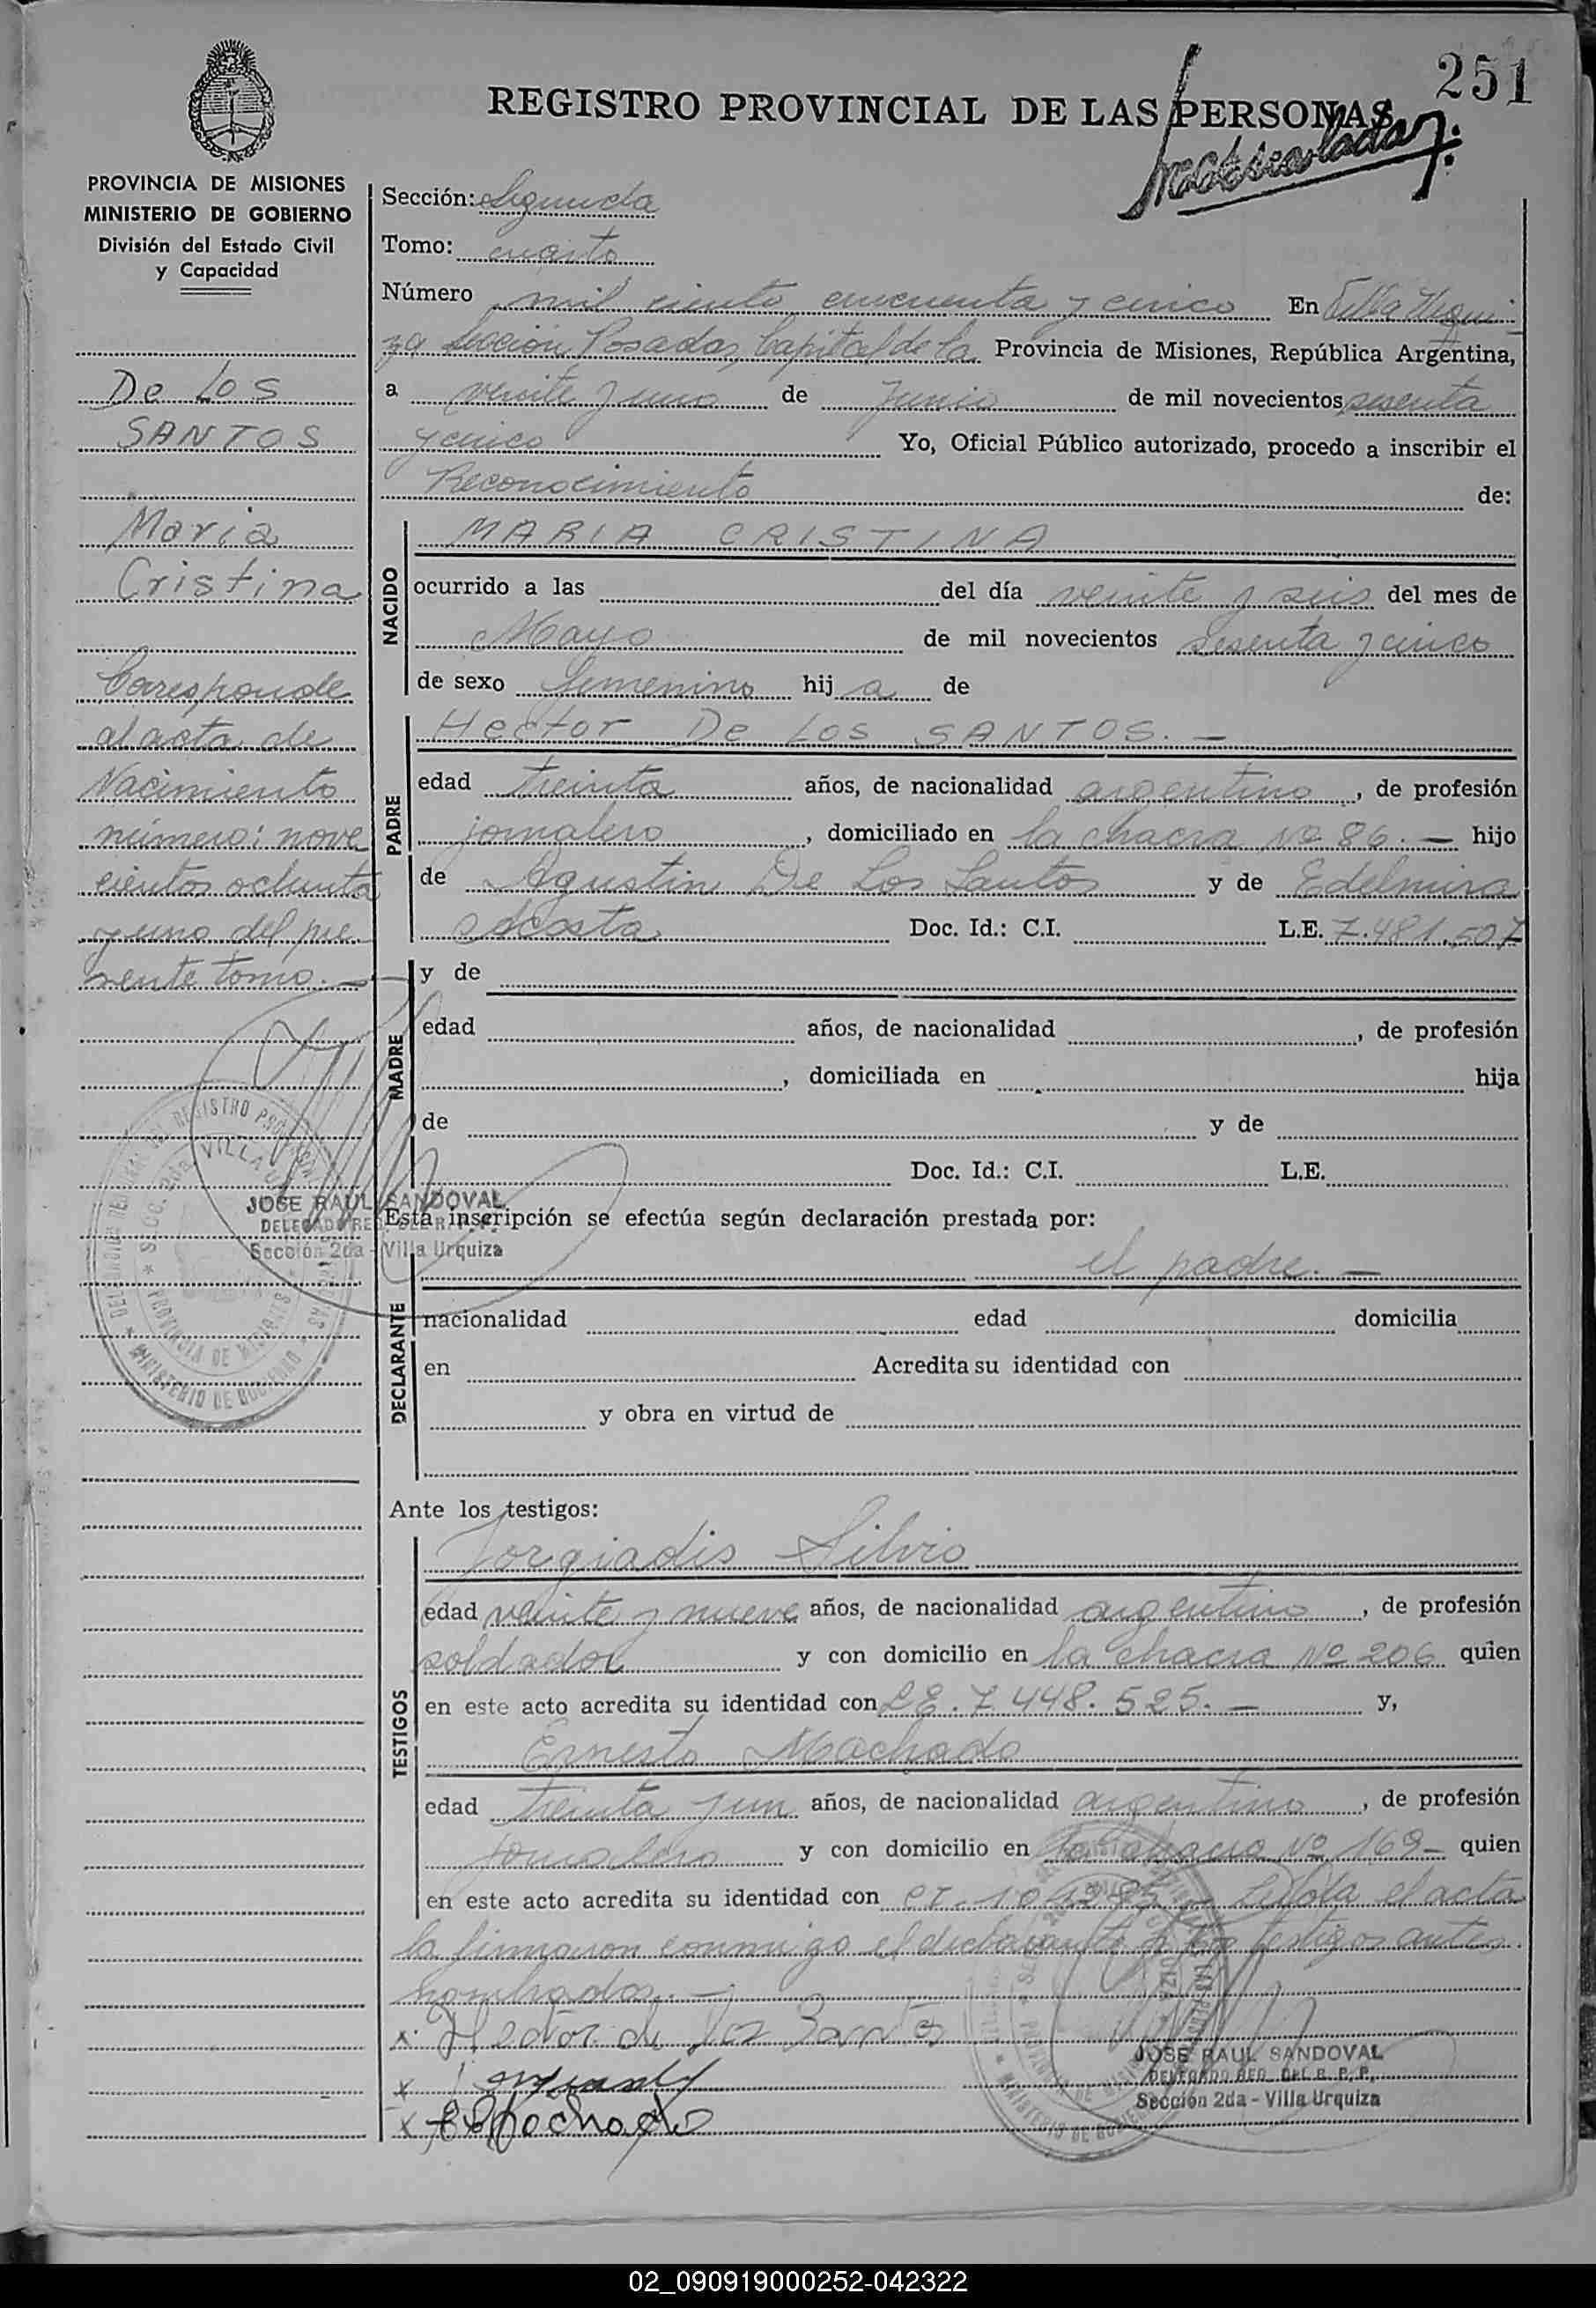 251
REGISTRO PROVINCIAL DE LAS PERSONAS
PROVINCIA DE MISIONES
MINISTERIO DE GOBIERNO
División del Estado Civil
y Capacidad
De Los
SANTOS
Maria
Cristina
Corresponde
al acta de
Nacimiento
número: nove
cientos ochenta
y uno del pre
sente tomo. -
JOSE RAUL SANDOVAL
Sección 2da - Villa Urquiza
Sección: Segunda
Tomo: cuarto
Número mil ciento cincuenta y cinco En Villa Urqui-
za Sección Posadas, Capital de la Provincia de Misiones, República Argentina,
a veinte y uno de Junio de mil novecientos sesenta
y cinco Yo, Oficial Público autorizado, procedo a inscribir el
Reconocimiento de:
NACIDO
MARIA CRISTINA
ocurrido a las del día veinte y seis del mes de
Mayo de mil novecientos sesenta y cinco
de sexo femenino hij a de
PADRE
Hector De Los SANTOS. -
edad treinta años, de nacionalidad argentino, de profesión
jornalero, domiciliado en la chacra Nº 86. - hijo
de Agustin De Los Santos y de Edelmira
Acosta Doc. Id.: C.I. L.E. 7.481.507
MADRE
y de
edad años, de nacionalidad , de profesión
, domiciliada en hija
de y de
Doc. Id.: C.I. L.E.
Esta inscripción se efectúa según declaración prestada por:
el padre. -
DECLARANTE
nacionalidad edad domicilia
en Acredita su identidad con
y obra en virtud de
Ante los testigos:
TESTIGOS
Jorgiadis Silvio
edad veinte y nueve años, de nacionalidad argentino, de profesión
soldador y con domicilio en la chacra Nº 206 quien
en este acto acredita su identidad con LE. 7.448.525. - y,
Ernesto Machado
edad treinta y un años, de nacionalidad argentino, de profesión
jornalero y con domicilio en la chacra Nº 169 - quien
en este acto acredita su identidad con CI. Leida el acta
la firmaron conmigo el declarante y los testigos antes
nombrados. -
x Hector de los Santos
x
x E Machado
JOSE RAUL SANDOVAL
DELEGADO REG. DEL R. P. P.
Sección 2da - Villa Urquiza
02_090919000252-042322